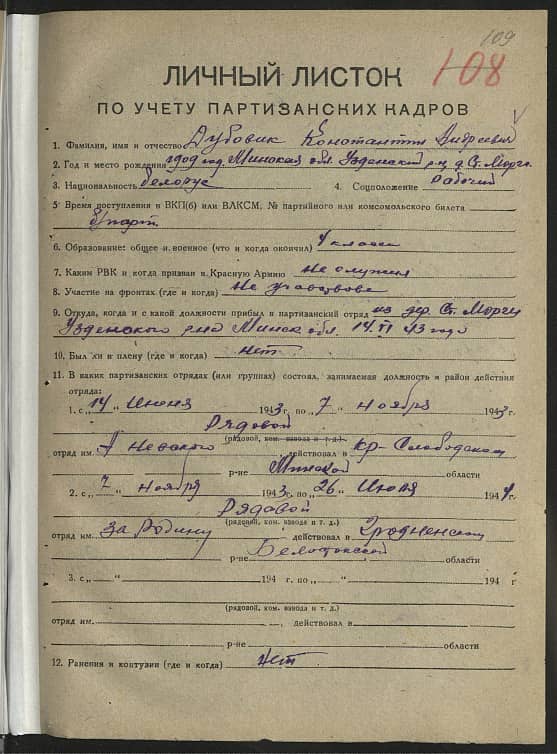 109
108
ЛИЧНЫЙ ЛИСТОК
ПО УЧЕТУ ПАРТИЗАНСКИХ КАДРОВ
1. Фамилия, имя и отчество Дубовик Константин Андреевич
2. Год и место рождения 1909 год Минская обл. Узденский р-н д. Ст. Морги
3. Национальность белорус 4. Соцположение рабочий
5. Время поступления в ВКП(б) или ВЛКСМ, № партийного или комсомольского билета
б/парт
6. Образование: общее и военное (что и когда окончил) 4 класса
7. Каким РВК и когда призван в Красную Армию не служил
8. Участие на фронтах (где и когда) не участвовал
9. Откуда, когда и с какой должности прибыл в партизанский отряд из дер. Ст. Морги
Узденского р-на Минск обл. 14. VI 43 года
10. Был ли в плену (где и когда) нет
11. В каких партизанских отрядах (или группах) состоял, занимаемая должность и район действия
отряда:
1. с „14“ Июня 1943 г. по „7“ ноября 1943 г.
Рядовой
(рядовой, ком. взвода и т. д.)
отряд им. А Невского действовал в Кр-Слободском
р-не Минской области
2. с „7“ ноября 1943 г. по „26“ Июля 1944 г.
Рядовой
(рядовой, ком. взвода и т. д.)
отряд им. За Родину действовал в Гродненском
р-не Белостокской области
3. с „ “ 194 г. по „ “ 194 г
(рядовой, ком. взвода и т. д.)
отряд им. , действовал в
р-не области
12. Ранения и контузии (где и когда) нет